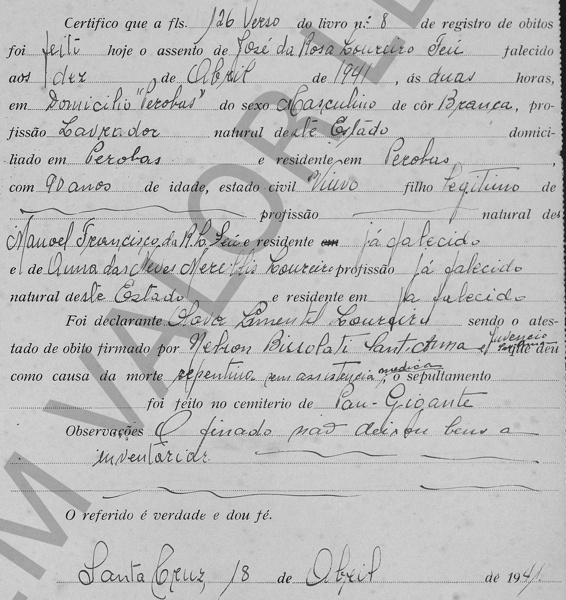 Certifico que a fls. 126 Verso do livro n.º 8 de registro de obitos
foi feito hoje o assento de José da Rosa Loureiro Feu falecido
aos dez de Abril de 1941, ás duas horas,
em Domicilio "Perobas" do sexo Masculino de côr Branca, pro-
fissão Lavrador natural deste Estado domici-
liado em Perobas e residente em Perobas,
com 90 anos de idade, estado civil Viuvo filho legitimo de
profissão natural de
Manoel Francisco da R. L. Feu e residente em já falecido
e de Anna das Neves Loureiro profissão já falecido
natural deste Estado e residente em já falecido
Foi declarante Pimentel Loureiro sendo o ates-
tado de obito firmado por Nelson Bissolati Sant'Anna e que deu
como causa da morte repentina sem assistencia medica, o sepultamento
foi feito no cemiterio de Pau-Gigante
Observações O finado não deixou bens a
inventariar
O referido é verdade e dou fé.
Santa Cruz, 18 de Abril de 1941.
EM VALOR LE